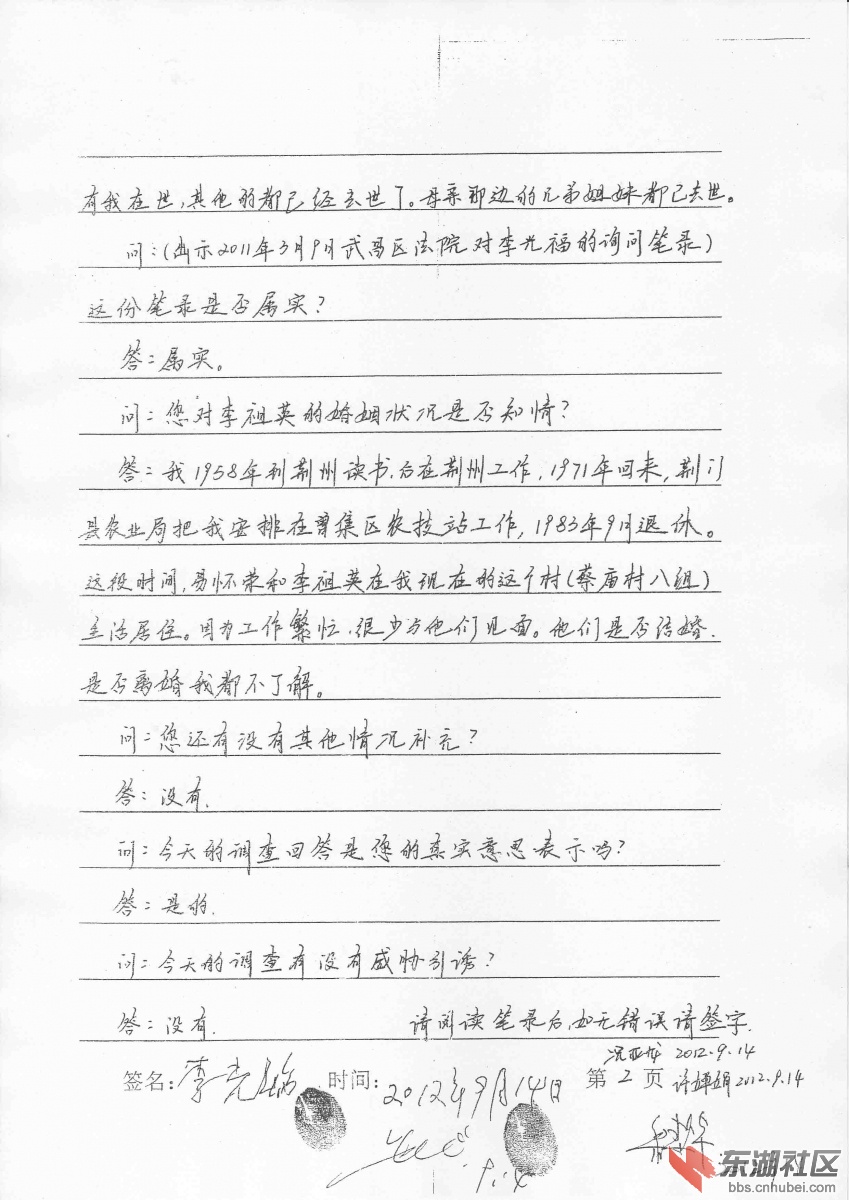 有我在世，其他的都已经去世了。母亲那边的兄弟姐妹都已去世。
问：（出示2011年3月9日武昌区法院对李光福的询问笔录）
这份笔录是否属实？
答：属实。
问：您对李祖英的婚姻状况是否知情？
答：我1958年到荆州读书，后在荆州工作，1971年回来，荆门
县农业局把我安排在曾集区农技站工作，1983年9月退休。
这段时间，易怀荣和李祖英在我现在的这个村（蔡庙村八组）
生活居住。因为工作繁忙，很少与他们见面。他们是否结婚、
是否离婚我都不了解。
问：您还有没有其他情况补充？
答：没有。
问：今天的调查回答是您的真实意思表示吗？
答：是的。
问：今天的调查有没有威胁引诱？
答：没有。 请阅读笔录后，如无错误请签字。
2012.9.14
签名：李光福 时间：2012年9月14日 第2页 许婵娟 2012.9.14
9.14
东湖社区
bbs.cnhubei.com